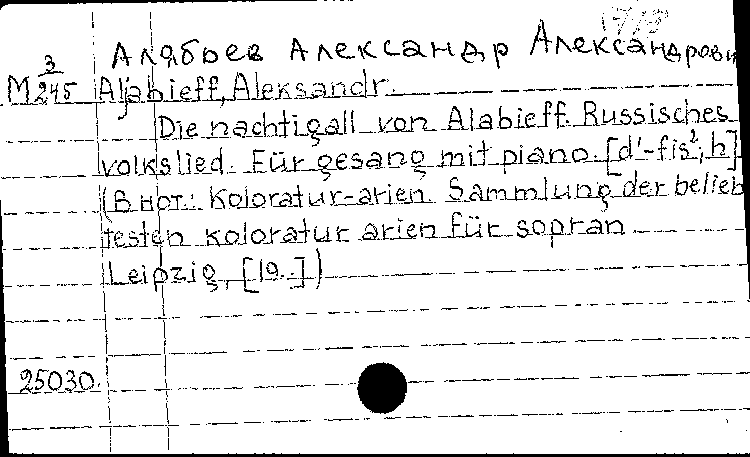 Алябьев Александр Александрови
М 3/245 Aljabieff, Aleksandr.
Die nachtigall von Alabieff. Russisches
volkslied. Für gesang mit piano. [d'-fis², h]
(В нот.: Koloratur-arien. Sammlung der belieb
testen koloratur arien für sopran
Leipzig, [19..])
25030.